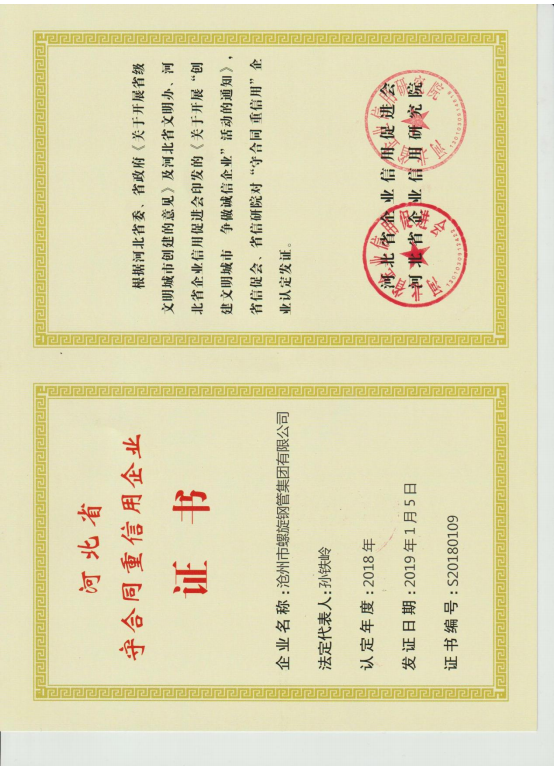 河北省
守合同重信用企业
证 书
企业名称：沧州市螺旋钢管集团有限公司
法定代表人：孙铁岭
认定年度：2018年
发证日期：2019年1月5日
证书编号：S20180109
根据河北省委、省政府《关于开展省级
文明城市创建的意见》及河北省文明办、河
北省企业信用促进会印发的《关于开展“创
建文明城市 争做诚信企业”活动的通知》，
省信促会、省信研院对“守合同重信用”企
业认定发证。
河北省企业信用促进会
河北省企业信用研究院